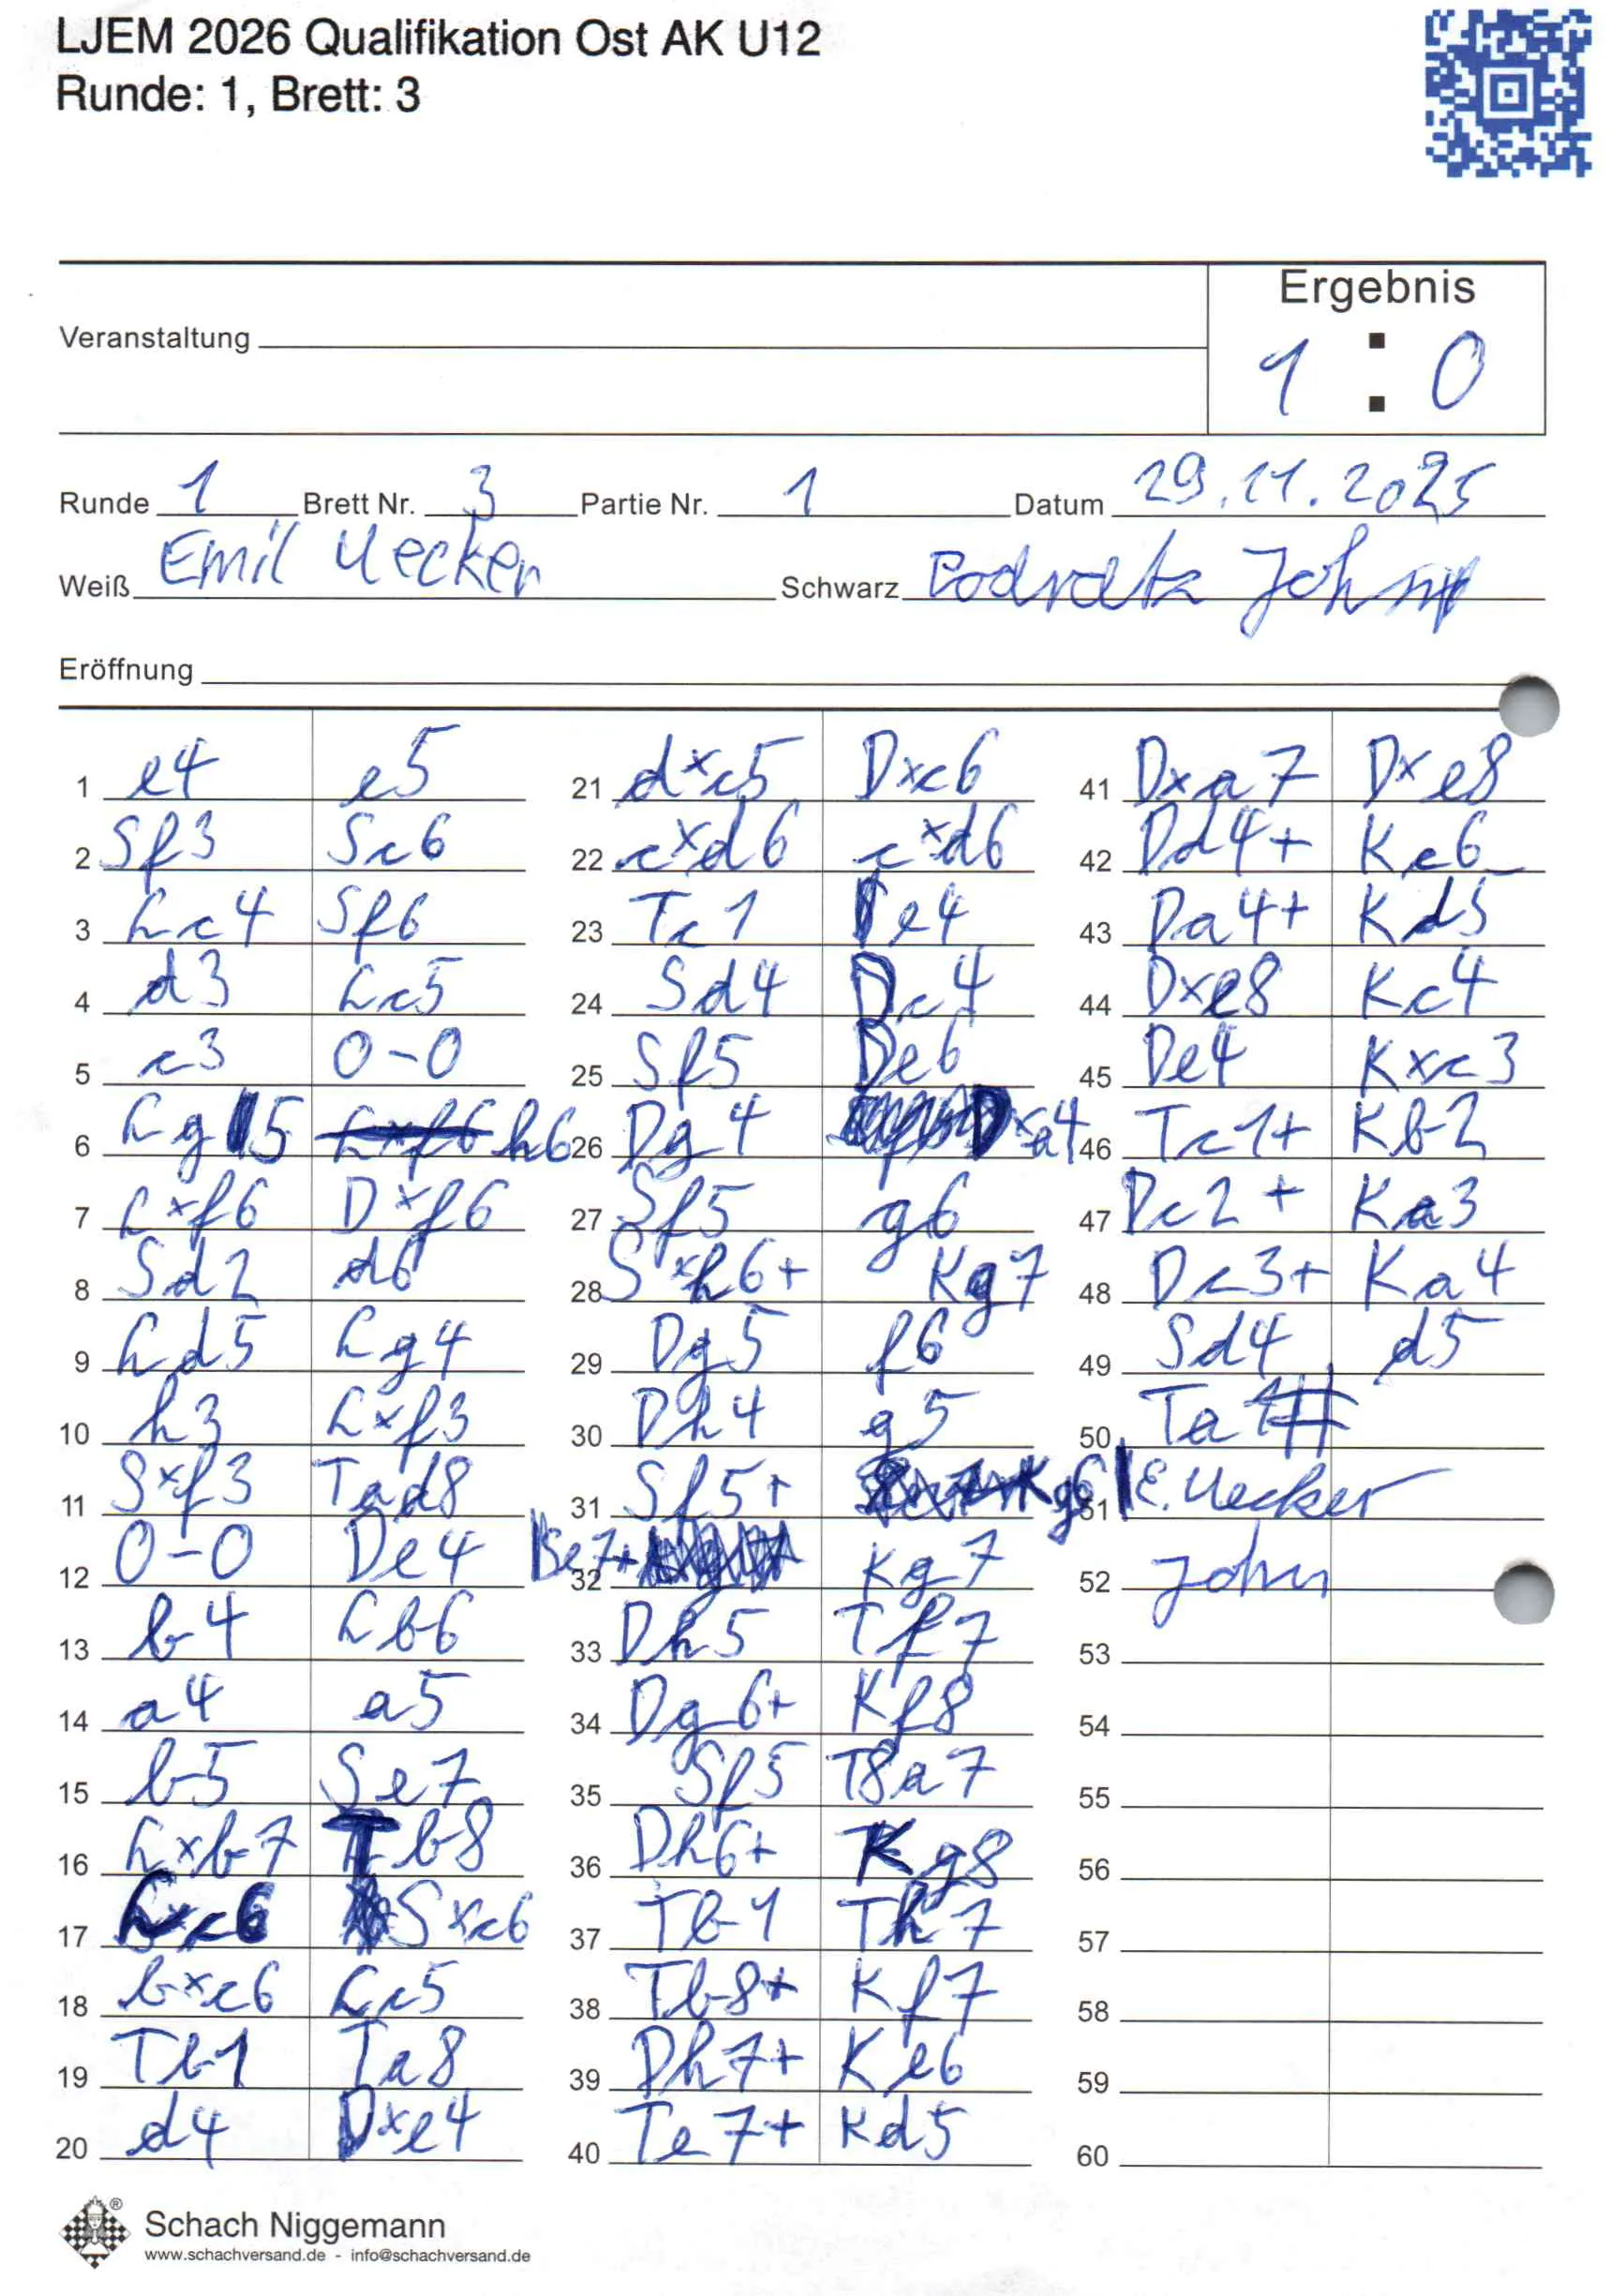 LJEM 2026 Qualifikation Ost AK U12
Runde: 1, Brett: 3
Ergebnis
Veranstaltung
1 : 0
Runde 1 Brett Nr. 3 Partie Nr. 1 Datum 29.11.2025
Weiß Emil Uecker Schwarz Podratz John
Eröffnung
1 e4 e5
2 Sf3 Sc6
3 Lc4 Sf6
4 d3 Lc5
5 c3 0-0
6 Lg5 Lxf6 h6
7 Lxf6 Dxf6
8 Sd2 d6
9 Ld5 Lg4
10 h3 Lxf3
11 Sxf3 Tad8
12 0-0 De4
13 b4 Lb6
14 a4 a5
15 b5 Se7
16 Lxb7 Tb8
17 Lxc6 Sxc6
18 bxc6 Lc5
19 Tb1 Ta8
20 d4 Dxe4
21 dxc5 Dxc6
22 cxd6 cxd6
23 Tc1 e4
24 Sd4 Dc4
25 Sf5 De6
26 Dg4 Dxa4
27 Sf5 g6
28 Sxh6+ Kg7
29 Dg5 f6
30 Dh4 g5
31 Sf5+ Kg6
32 Se7+ Kg7
33 Dh5 Tf7
34 Dg6+ Kf8
35 Sf5 T8a7
36 Dh6+ Kg8
37 Tb1 Th7
38 Tb8+ Kf7
39 Dh7+ Ke6
40 Te7+ Kd5
41 Dxa7 Dxe8
42 Dd4+ Ke6
43 Da4+ Kd5
44 Dxe8 Kc4
45 De4 Kxc3
46 Tc1+ Kb2
47 Dc2+ Ka3
48 Dc3+ Ka4
49 Sd4 d5
50 Ta1#
51 E. Uecker
52 John
53
54
55
56
57
58
59
60
Schach Niggemann
www.schachversand.de - info@schachversand.de